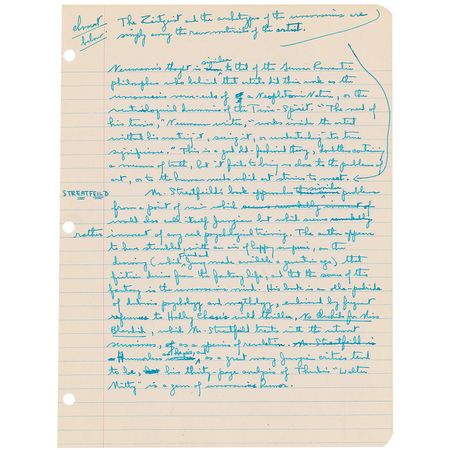 insert
below
The Zeitgeist and the archetypes of the unconscious are
simply among the raw materials of the artist.
Neumann's thought is similar to that of the German Romantic
philosophers who believed that artists did this work as the
unconscious mid-wives of a Neoplatonic Nature, or the
ventriloquial dummies of the Time-Spirit. "The need of
his times," Neumann writes, "works inside the artist
without his wanting it, seeing it, or understanding its true
significance." This is a good old-fashioned theory, doubtless containing
a measure of truth, but it fails to bring us close to the problems of
art, or to the human needs which art strives to meet.
STREATFEILD
Mr. Streatfeild's book approaches similar problems
from a point of view which seems remarkably innocent of
would also call itself Jungian but which seems remarkably
rather innocent of any real psychological training. The author appears
to have stumbled, with an air of happy surprise, on the
discovery (which Freud Jung made available a generation ago) that
fiction derives from the fantasy life, and that the source of the
fantasy is the unconscious mind. His book is an olla-podrida
of psychology and mythology, enlivened by frequent
references to Hadley Chase's sordid thriller, No Orchids for Miss
Blandish, which Mr. Streatfeild treats with the utmost
seriousness, as a species of revelation. Mr Streatfeild is
Humorless as a great many Jungian critics tend
to be, his thirty-page analysis of Thurber's "Walter
Mitty" is a gem of unconscious humor.